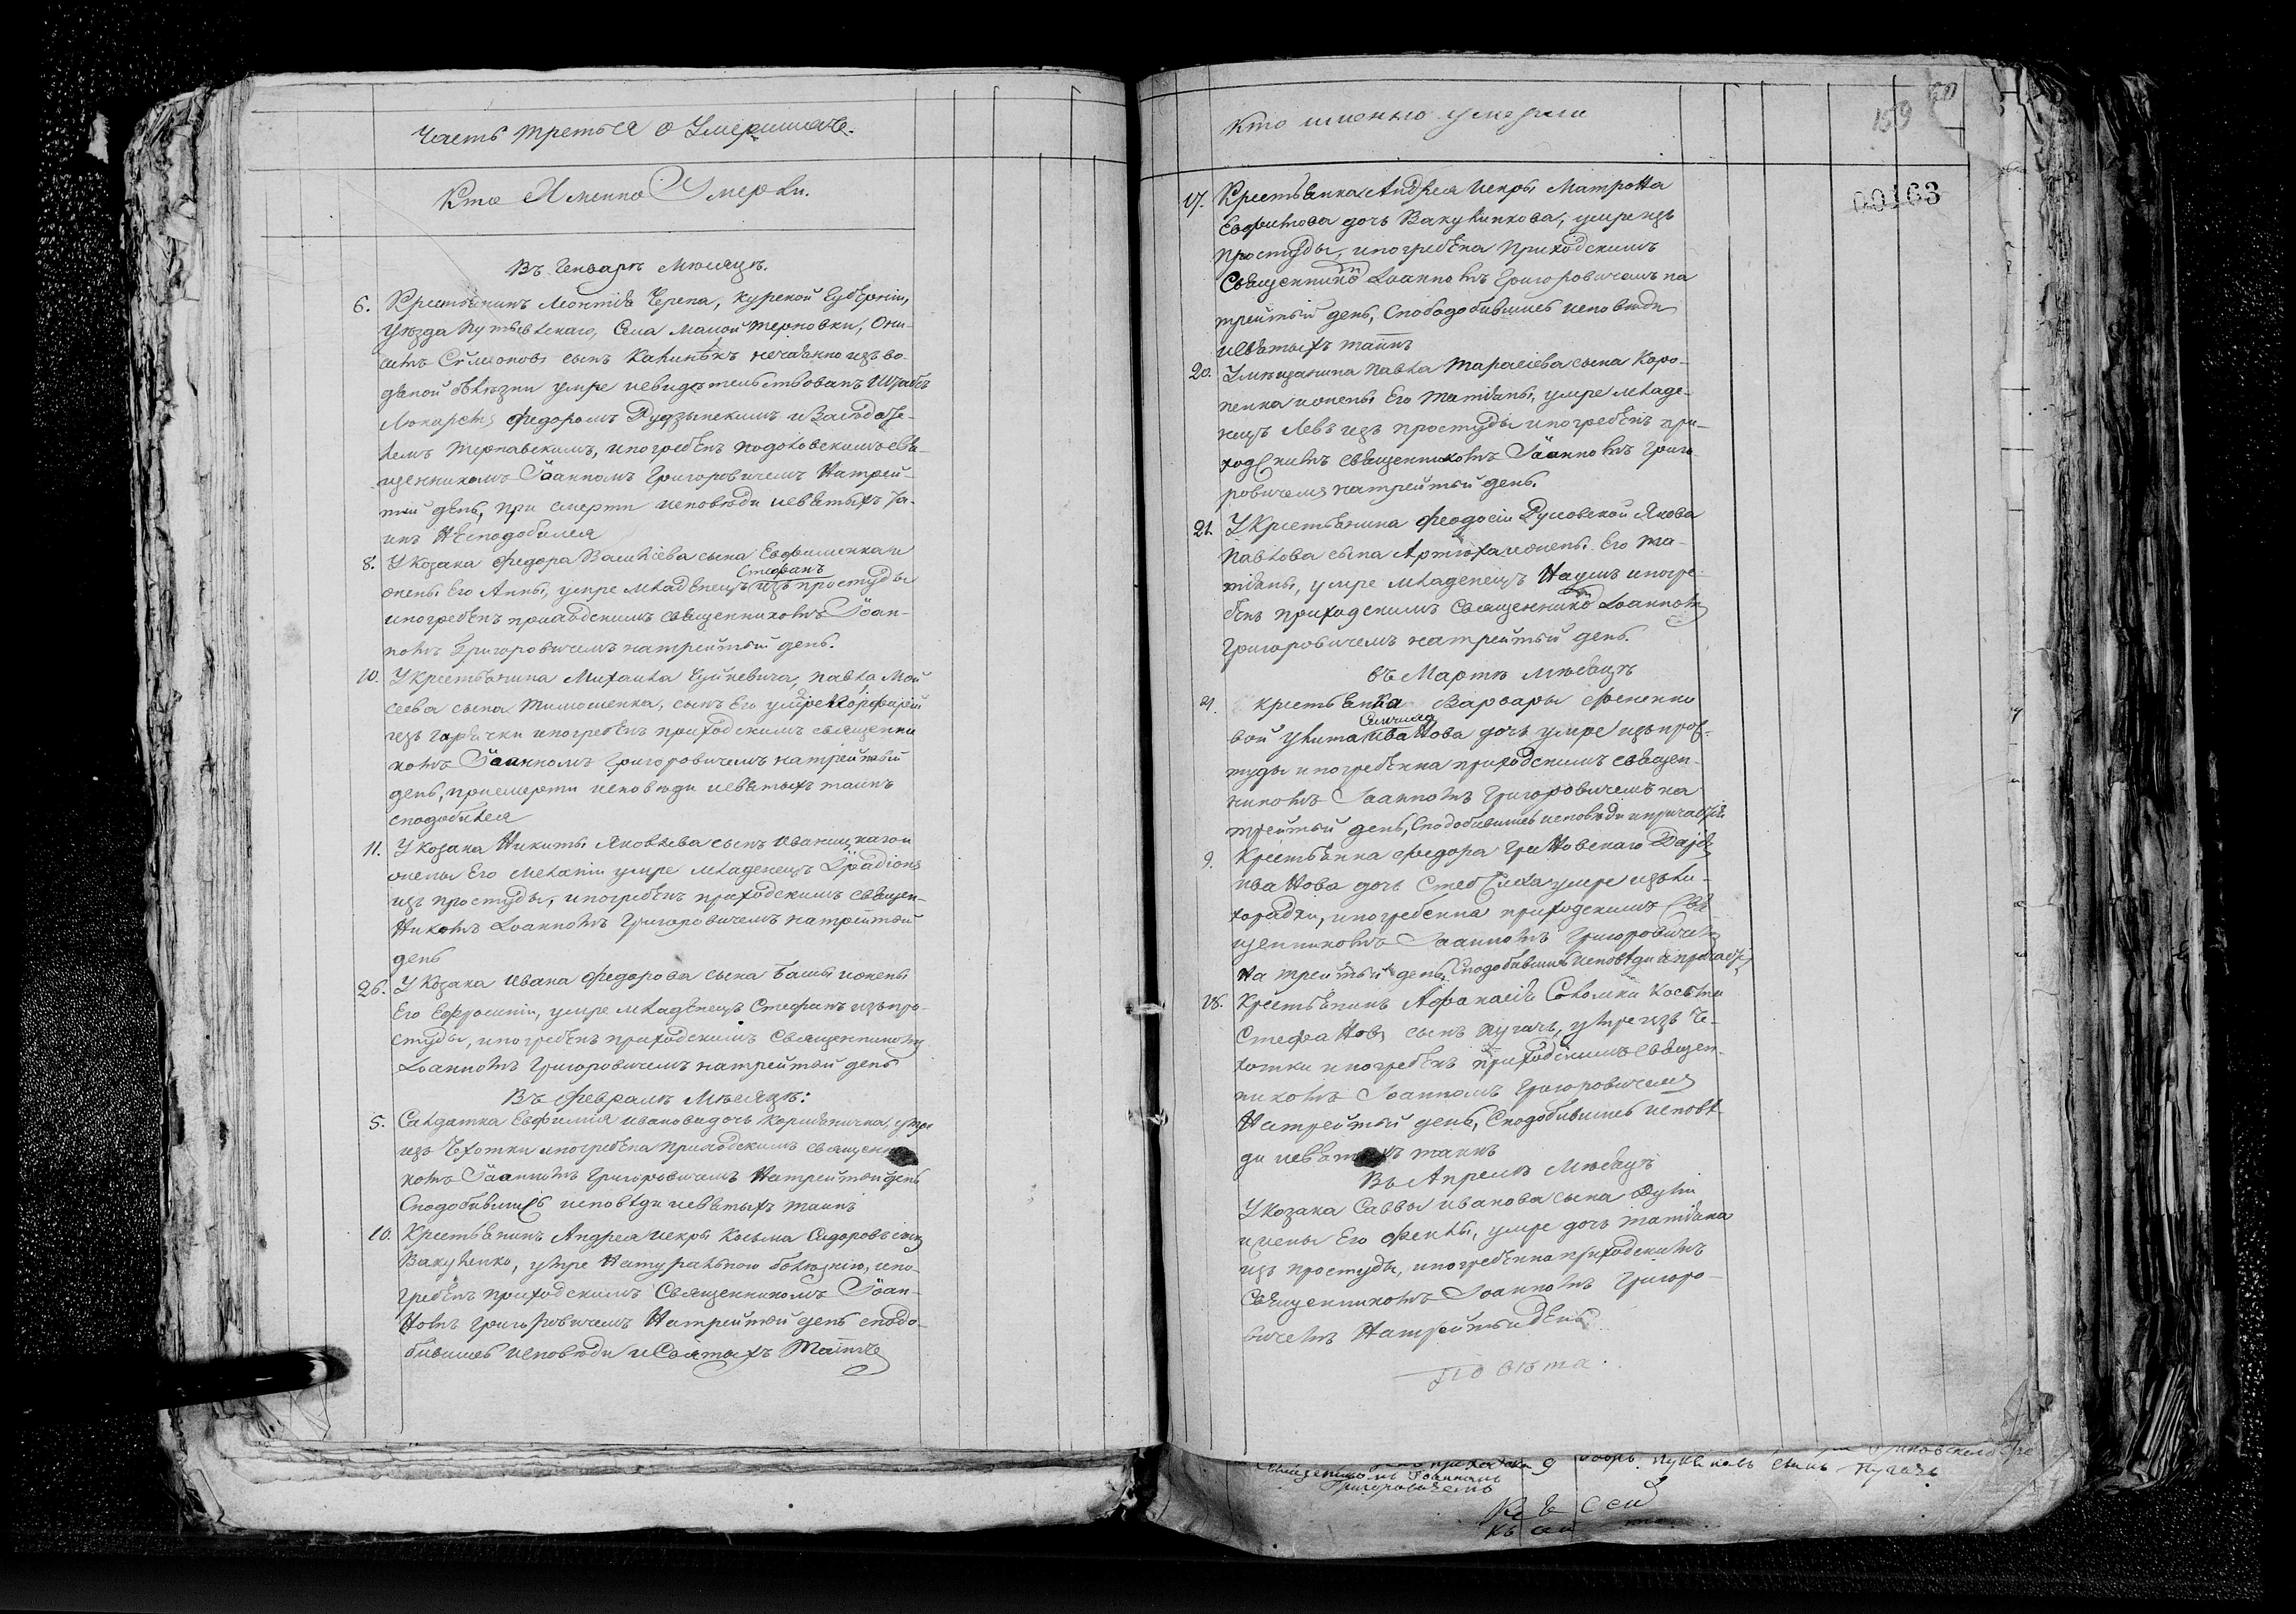 Часть третья о Умершихъ.
Кто Именно Умерли.
Въ Генварѣ Мѣсяцѣ.
6. Крестьянинъ Леонтія Черепа, Курской Губерніи,
Уѣзда Путивлскаго, Села Малой Терновки, Они-
симъ Сѵмеоновъ сынъ нечаянно изъ во-
дяной болѣзни умре и свидѣтельствованъ Штабъ
Лекаремъ Федоромъ и Засѣдате-
лемъ Тернавскимъ, и погребенъ свя-
щенникомъ Іоанномъ Григоровичемъ на трей-
тій день, при смерти исповѣди и святыхъ та-
инъ не сподобился
8. У Козака Федора Василіева сына Евфименка и
жены Его Анны, умре младенецъ Стефанъ изъ простуды
и погребенъ приходскимъ священникомъ Іоан-
номъ Григоровичемъ на трейтый день.
10. У крестьянина Михаила Гуйневича, Павла Мой
сеева сына Тимошенка, сынъ Его умре
изъ горячки и погребенъ приходскимъ священни
комъ Іоанномъ Григоровичемъ на трейтый
день, при смерти исповѣди и святыхъ таинъ
сподобился
11. У Козака Никиты Яковлева сынъ
жены Его Меланіи умре младенецъ
изъ простуды, и погребенъ приходскимъ священ-
никомъ Іоанномъ Григоровичемъ на трейтый
день
26. У Козака Ивана Федорова сына Баши и жены
Его Ефросиніи, умре младенецъ Стефанъ изъ про-
студы, и погребенъ приходскимъ Священникомъ
Іоанномъ Григоровичемъ на трейтый день
Въ Февралѣ Мѣсяцѣ:
5. Салдатка Евфимія Иванова дочь умре
изъ Чехотки и погребена приходскимъ священни
комъ Іоанномъ Григоровичемъ на трейтый день
Сподобившись исповѣди и святыхъ таинъ
10. Крестьянинъ Андрея Искры Косьма Сидоровъ сынъ
Вакуленко, умре Натуральною болѣзнію, и по-
гребенъ приходскимъ Священникомъ Іоан-
номъ Григоровичемъ на трейтый день сподо-
бившись исповѣди и Святыхъ Таинъ
Кто именно умерли
159
00163
17. Крестьянка Андрея Искры Матрона
дочь Вакуленкова, умре изъ
простуды, и погребена Приходскимъ
Священнико Іоанномъ Григоровичемъ на
трейтый день, Сподобившись исповѣди
и святыхъ таинъ
20. У мѣщанина Павла Тарасіева сына Коро-
ленка и жены Его Татіаны, умре младе-
нецъ Левъ изъ простуды и погребенъ при-
ходскимъ священникомъ Іоанномъ Григо-
ровичемъ на трейтый день.
21. У Крестьянина Феодосіи Якова
Павлова сына Артюха и жены Его Та-
тіаны, умре младенецъ Наумъ и погре-
бенъ приходскимъ Священнико Іоанномъ
Григоровичемъ на трейтый день.
въ Мартѣ мѣсяцѣ
крестьянка Варвары
Иванова дочь умре изъ прос-
туды и погребенна приходскимъ священ-
никомъ Іоанномъ Григоровичемъ на
трейтый день, Сподобившись исповѣди и причастія
9. Крестьянка Федора
Иванова дочь умре изъ ли-
хорадки, и погребенна приходскимъ свя
щенникомъ Іоанномъ Григоровичемъ
на трейтый день, Сподобившись исповѣди и причастія
18. Крестьянинъ Афанасія Соломки Косьма
Стефановъ сынъ Пугачъ, умре изъ Че-
хотки и погребенъ приходскимъ священ-
никомъ Іоанномъ Григоровичемъ
на трейтый день, Сподобившись исповѣ-
ди и святыхъ таинъ
Въ Апрелѣ Мѣсяцѣ
У Козака Саввы Иванова сына
и жены Его Феклы, умре дочь Татіана
изъ простуды, и погребенна приходскимъ
Священникомъ Іоанномъ Григоро-
вичемъ на трейтый день
священникомъ Іоанномъ
Григоровичемъ
сынъ Пугачъ